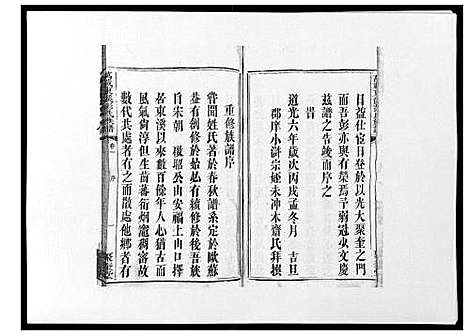 目益仕宦日登於以光大聚奎之門
而吾彭亦與有榮焉予弱冠央文慶
茲譜之告竣而序之
旹
道光六年歲次丙戌孟冬月 吉旦
郡庠小澣宗姪未冲木齋氏拜撰
重修族譜序
嘗聞姓氏著於春秋譜系定於歐蘇
葢有創修於始必有續修於後吾族
自宋朝 公由安福上山口擇
居東溪以來數百餘年人心猶古而
風氣尚淳但生齒蕃衍烟竈稠密故
數代共處者有之而散處他鄉者有
卷
序